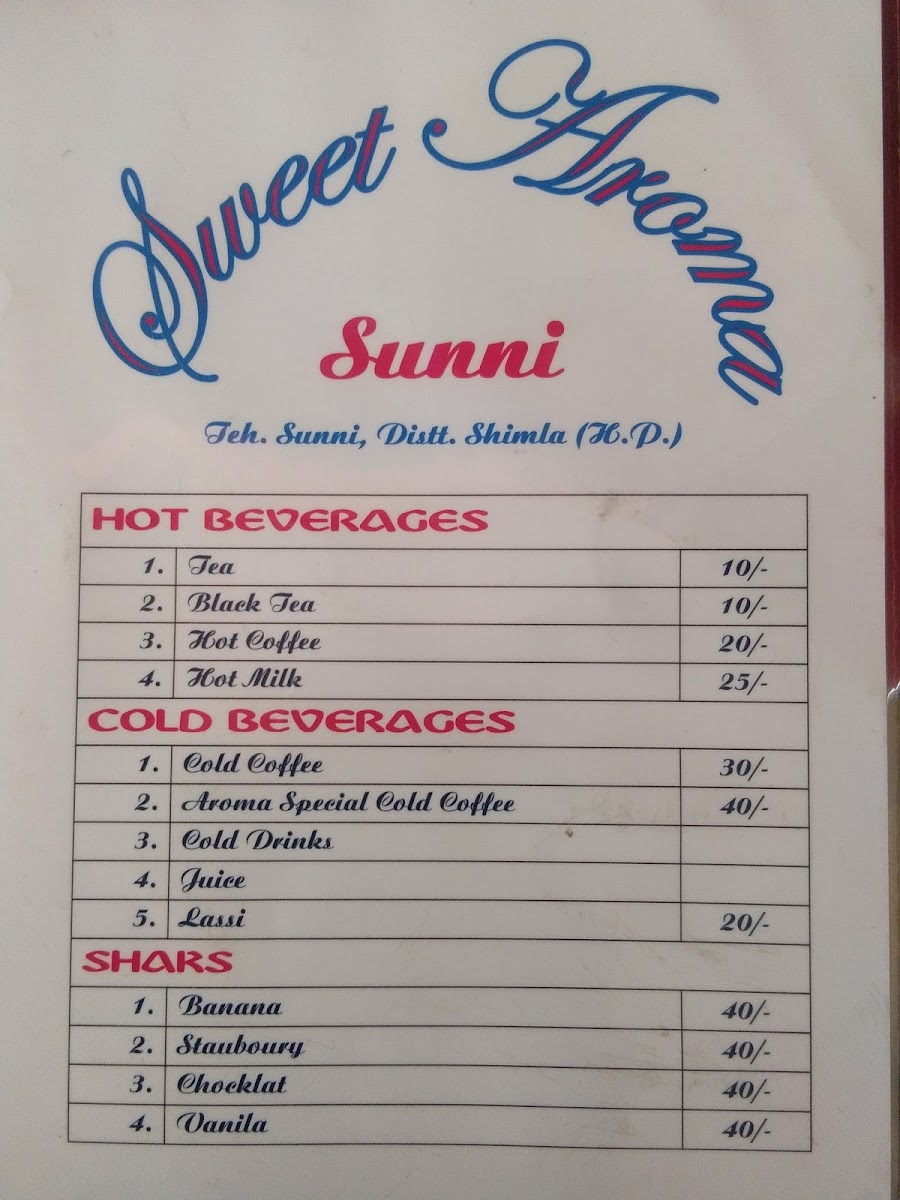 Sweet Aroma
Sunni
Teh. Sunni, Distt. Shimla (H.P.)
HOT BEVERAGES
1. Tea 10/-
2. Black Tea 10/-
3. Hot Coffee 20/-
4. Hot Milk 25/-
COLD BEVERAGES
1. Cold Coffee 30/-
2. Aroma Special Cold Coffee 40/-
3. Cold Drinks
4. Juice
5. Lassi 20/-
SHARS
1. Banana 40/-
2. Stauboury 40/-
3. Chocklat 40/-
4. Vanila 40/-